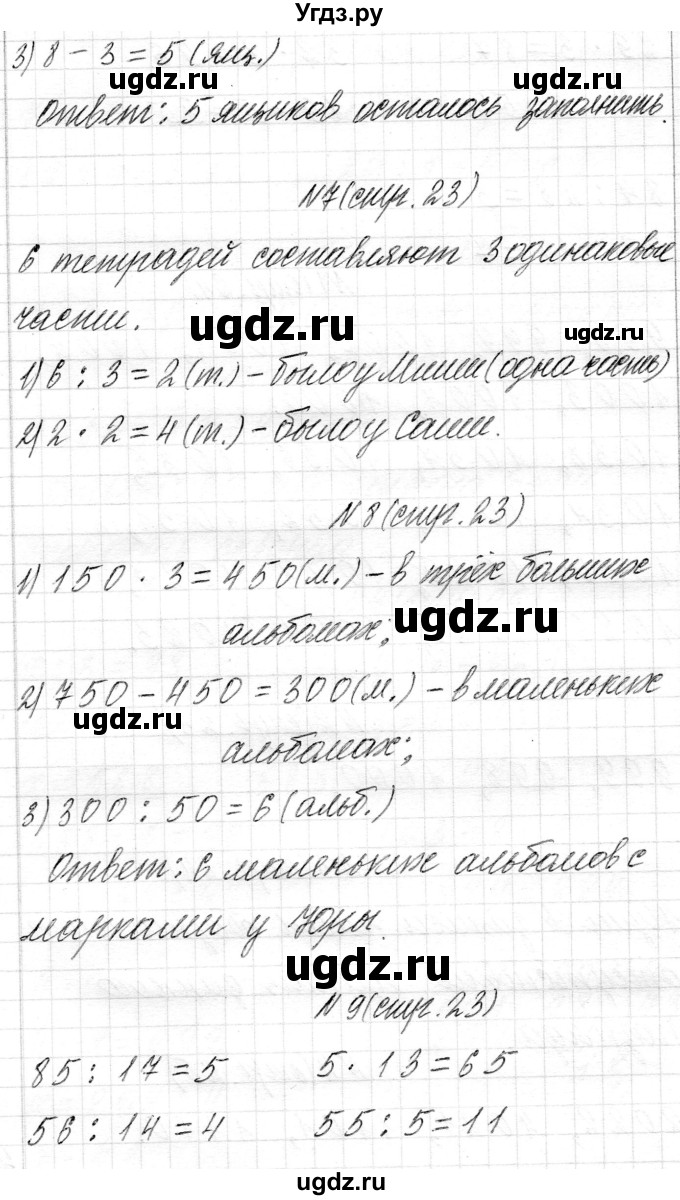 Угдз.ру
3) 8 - 3 = 5 (ящ.)
Ответ: 5 ящиков осталось заполнить.
N7 (стр. 23)
6 тетрадей составляют 3 одинаковые
части.
1) 6 : 3 = 2 (т.) - было у Миши (одна часть)
2) 2 · 2 = 4 (т.) - было у Саши.
N 8 (стр. 23)
1) 150 · 3 = 450 (м.) - в трёх больших
альбомах;
2) 750 - 450 = 300 (м.) - в маленьких
альбомах;
3) 300 : 50 = 6 (альб.)
Ответ: 6 маленьких альбомов с
марками у Юры.
N 9 (стр. 23)
85 : 17 = 5 5 · 13 = 65
56 : 14 = 4 55 : 5 = 11
ugdz.ru
ugdz.ru
ugdz.ru
ugdz.ru
ugdz.ru
ugdz.ru
ugdz.ru
ugdz.ru
ugdz.ru